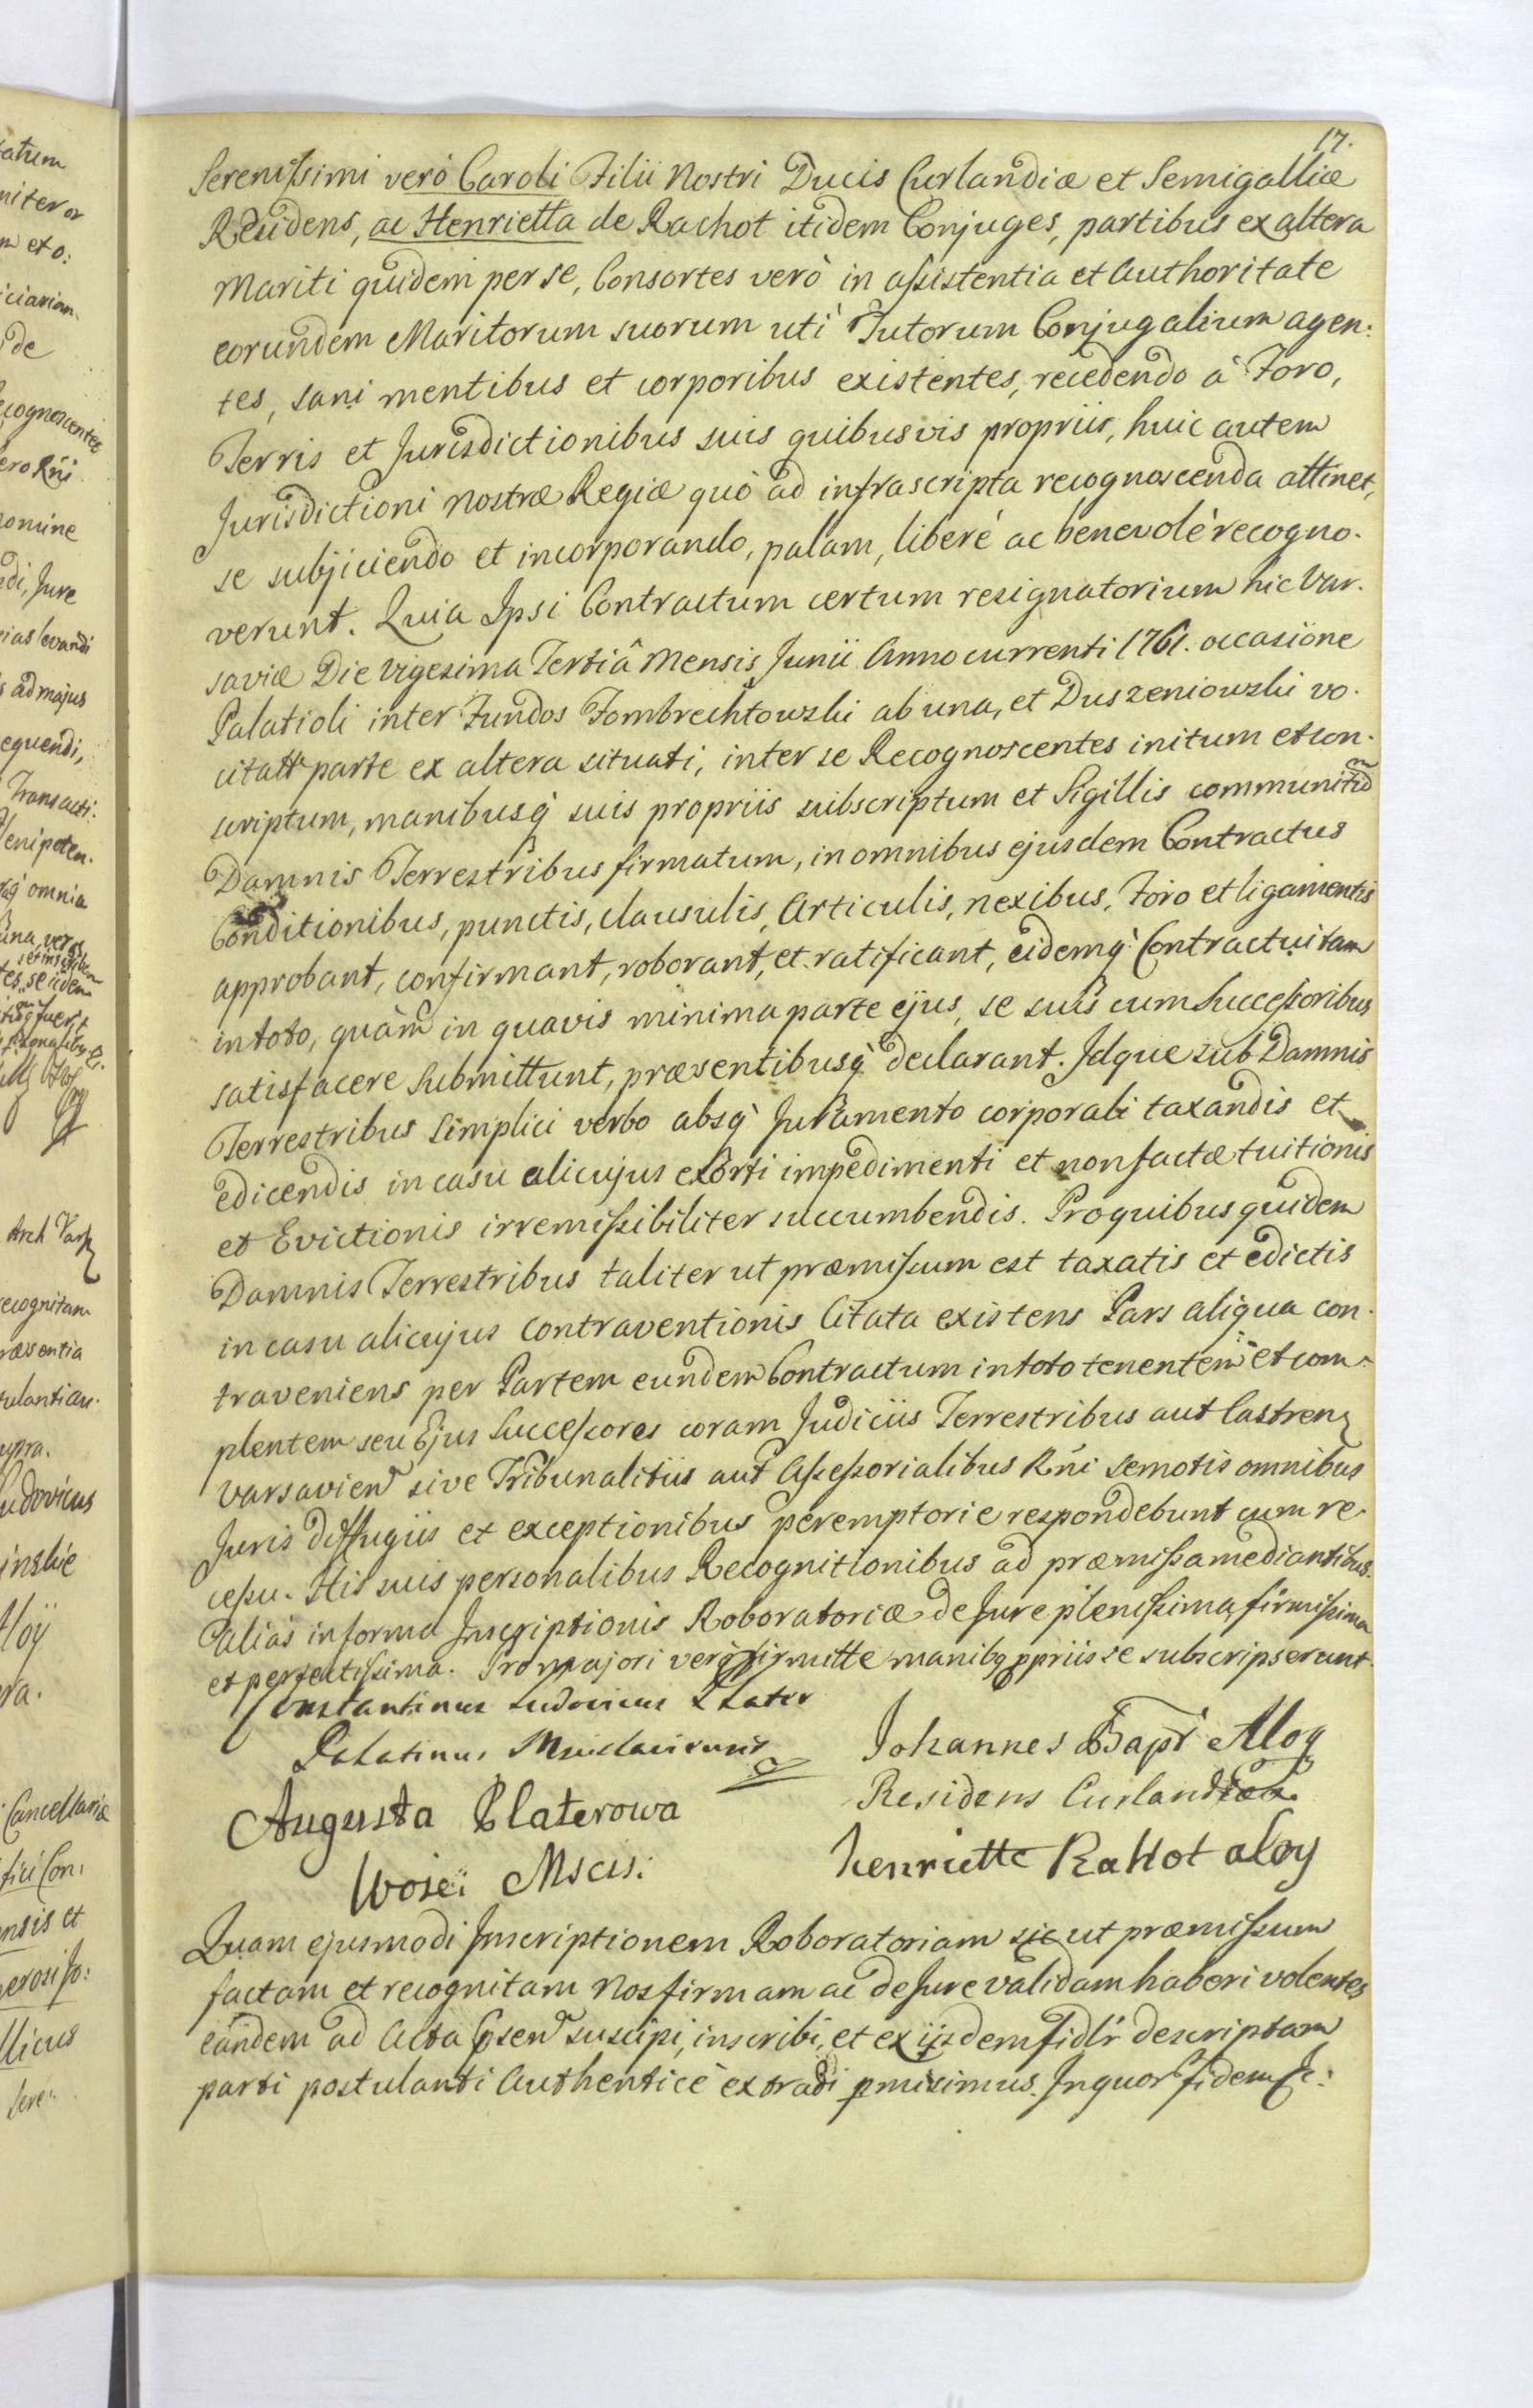 17.
Serenissimi verò Caroli Filii Nostri Ducis Curlandiæ et Semigalliæ
Residens, ac Henrietta de Rachot itidem Conjuges, partibus ex altera
Mariti quidem per se, Consortes verò in assistentia et Authoritate
eorundem Maritorum suorum uti Tutorum Conjugalium agen:
tes, sani mentibus et corporibus existentes, recedendo à Foro,
Terris et Jurisdictionibus suis quibusvis propriis, huic autem
Jurisdictioni Nostræ Regiæ quò ad infrascripta recognoscenda attinet,
se subjiciendo et incorporando, palam, liberè ac benevolè recogno.
verunt. Quia Ipsi Contractum certum resignatorium hic Var.
saviæ Die Vigesima Tertiâ Mensis Junii Anno currenti 1761. occasione
Palatioli inter Fundos Fombrechtowski ab una, et Duszeniowski vo.
citatt parte ex altera situati, inter se Recognoscentes initum et con.
scriptum, manibusq̀ suis propriis subscriptum et Sigillis communitũ
Damnis Terrestribus firmatum, in omnibus ejusdem Contractus
Conditionibus, punctis, clausulis, Articulis, nexibus, Foro et ligamentis
approbant, confirmant, roborant, et ratificant, eidemq̀ Contractui tam
in toto, quàm in quavis minima parte ejus, se suis cum Successoribus
satisfacere submittunt, præsentibusq̀ declarant. Idque sub Damnis
Terrestribus simplici verbo absq̀ Juramento corporali taxandis et
edicendis in casu alicujus exorti impedimenti et non factæ tuitionis
et Evictionis irremissibiliter succumbendis. Pro quibus quidem
Damnis Terrestribus taliter ut præmissum est taxatis et edictis
in casu alicujus contraventionis Citata existens Pars aliqua con.
traveniens per Partem eundem Contractum in toto tenentem et com.
plentem seu Ejus Successores coram Judiciis Terrestribus aut Castren
Varsavien sive Tribunalitiis aut Assessorialibus Rńi semotis omnibus
Juris diffugiis et exceptionibus peremptorie respondebunt cum re.
cessu. His suis personalibus Recognitionibus ad præmissa mediantibus.
Aliàs in forma Inscriptionis Roboratoriæ de Jure plenissima, firmissima
et perfectissima. Pro majori verò firmitte manibq ppriis se subscripserunt.
Constantinus Ludovicus Plater
Palatinus Mscislaviensis
Johannes Bapt Aloy
Residens Curlandiæ
Augusta Platerowa
Woje: Mscis:
henriette Rahot aloy
Quam ejusmodi Inscriptionem Roboratoriam sic ut præmissum
factam et recognitam Nos firmam ac de Jure validam haberi volentes
eandem ad Acta psen suscipi, inscribi, et ex iisdem fidlr descriptam
parti postulanti Authenticè extradi pmisimus. In quor fidem &c: